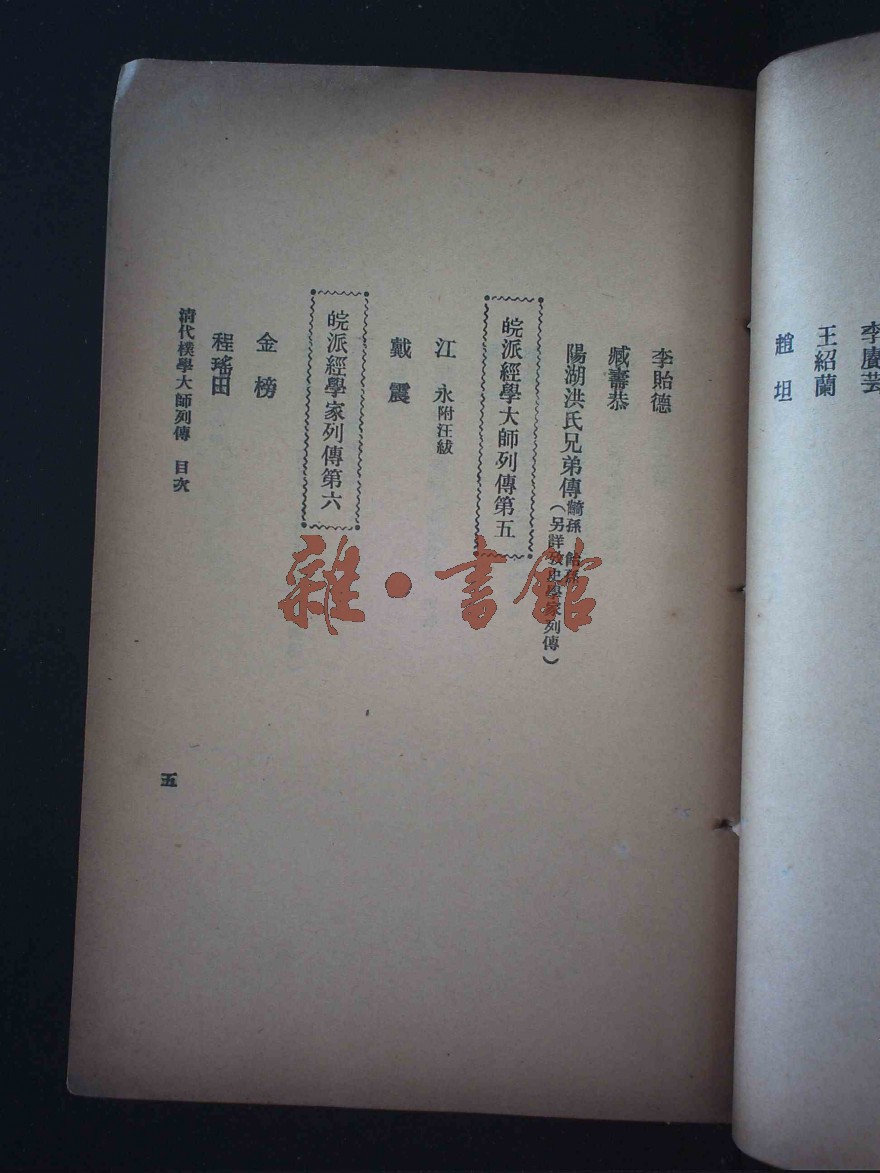 李賡芸
王紹蘭
趙坦
李貽德
臧壽恭
陽湖洪氏兄弟傳 齮孫 飴孫（另詳攷史學家列傳）
皖派經學大師列傳第五
江永附汪紱
戴震
皖派經學家列傳第六
金榜
程瑤田
清代樸學大師列傳 目次
五
雜·書館